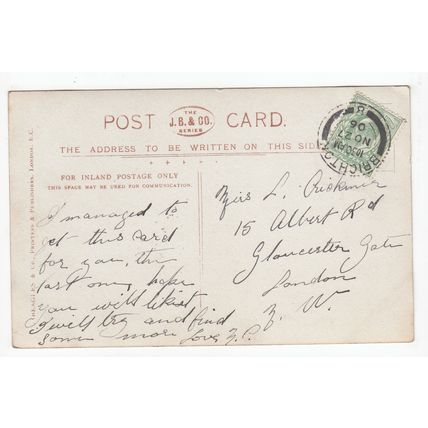 POST CARD.
THE
J.B. & CO.
SERIES
THE ADDRESS TO BE WRITTEN ON THIS SIDE
FOR INLAND POSTAGE ONLY
THIS SPACE MAY BE USED FOR COMMUNICATION.
I managed to
get this card
for you, the
last one, hope
you will like it
I will try and find
some more love
Miss L.
15 Albert Rd
Gloucester Gate
London
N. W.
BRIGHTON
10.30 PM
NO 27
06
& CO., PRINTERS & PUBLISHERS, LONDON, E.C.